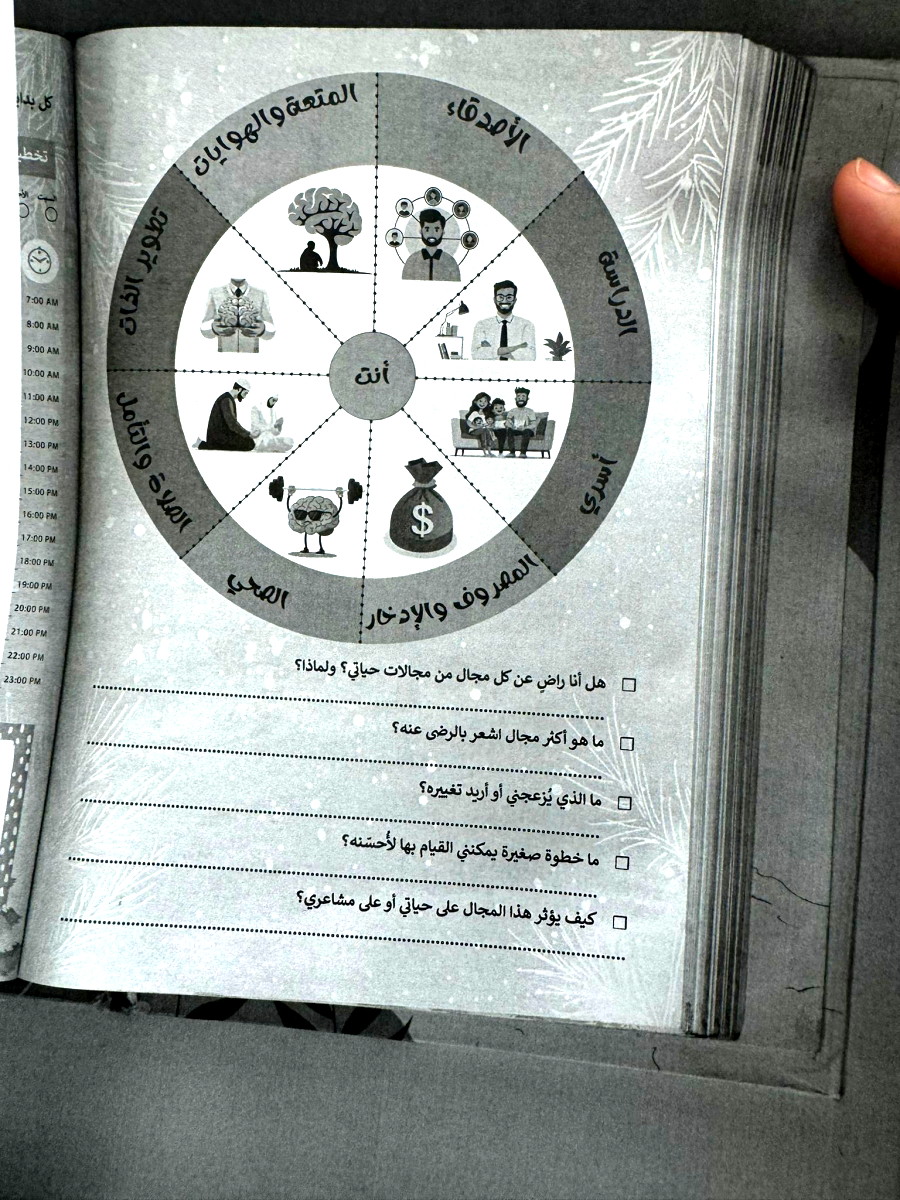 الأصدقاء
الدراسة
أسري
المصروف والإدخار
الصحي
الصلاة والتأمل
تطوير الذات
المتعة والهوايات
أنت
$
هل أنا راضٍ عن كل مجال من مجالات حياتي؟ ولماذا؟
ما هو أكثر مجال اشعر بالرضى عنه؟
ما الذي يُزعجني أو أريد تغييره؟
ما خطوة صغيرة يمكنني القيام بها لأُحسّنه؟
كيف يؤثر هذا المجال على حياتي أو على مشاعري؟
كل
7:00 AM
8:00 AM
9:00 AM
10:00 AM
11:00 AM
12:00 PM
13:00 PM
14:00 PM
15:00 PM
16:00 PM
17:00 PM
18:00 PM
19:00 PM
20:00 PM
21:00 PM
22:00 PM
23:00 PM